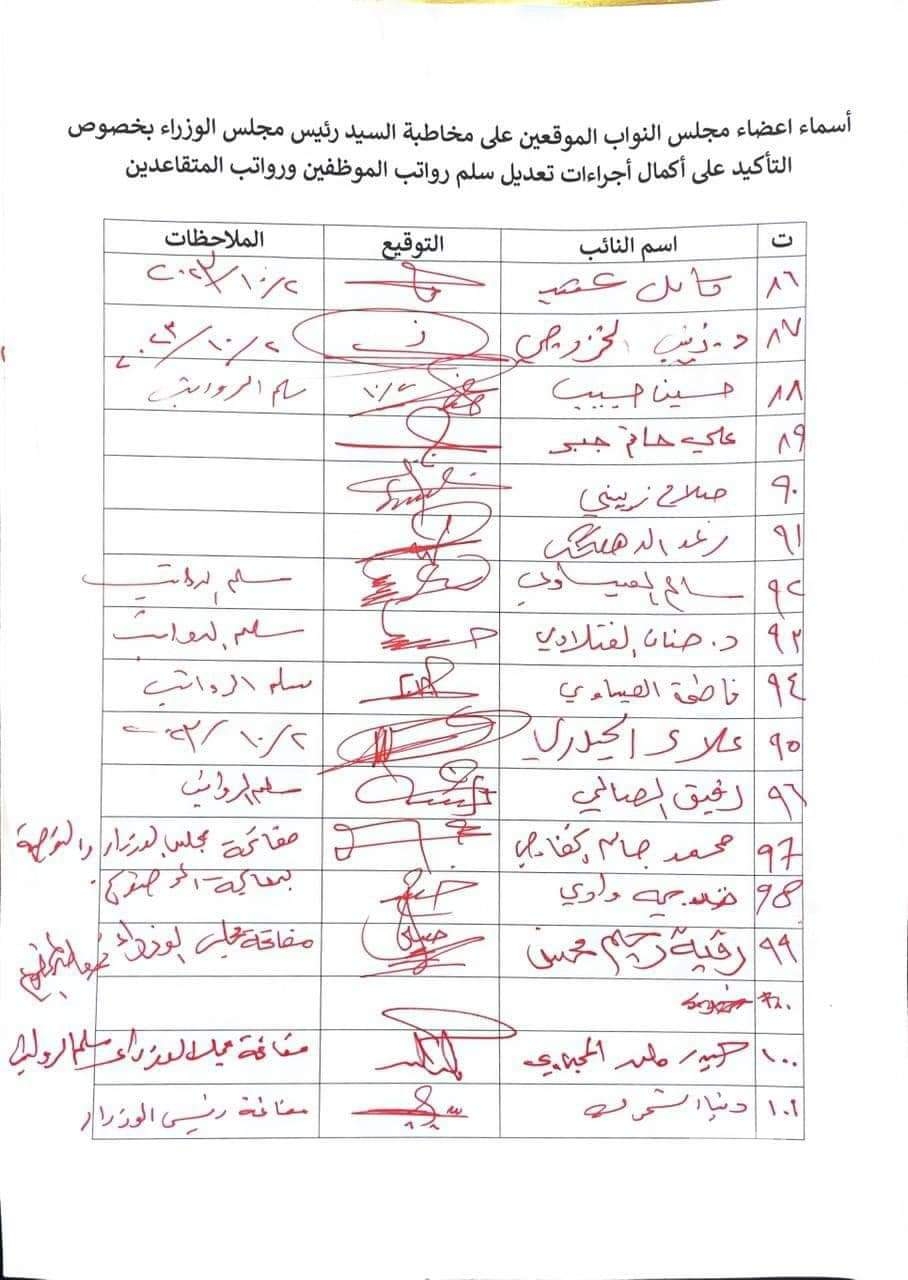 أسماء اعضاء مجلس النواب الموقعين على مخاطبة السيد رئيس مجلس الوزراء بخصوص
التأكيد على أكمال أجراءات تعديل سلم رواتب الموظفين ورواتب المتقاعدين
ت اسم النائب التوقيع الملاحظات
٨٦ ٢٠٢٣/١٠/٢
٨٧ د. زينب الخزرجي ٢٠٢٣/١٠/٢
٨٨ حسين حبيب ١٠/٢ سلم الرواتب
٨٩ علي حاتم جبر
٩٠ صلاح زيني
٩١ رغد
٩٢ سالم العيساوي سلم الرواتب
٩٣ د. حنان الفتلاوي سلم الرواتب
٩٤ فاطمة العيساوي سلم الرواتب
٩٥ علاء الحيدري ٢٠٢٣/١٠/٢
٩٦ رفيق الصالحي سلم الرواتب
٩٧ محمد جاسم الخفاجي مفاتحة مجلس الوزراء
٩٨ خديجة وادي
٩٩ رقية رحيم محسن مفاتحة مجلس الوزراء
١٠٠ مفاتحة مجلس الوزراء سلم الرواتب
١٠١ دنيا الشمري مفاتحة رئيس الوزراء